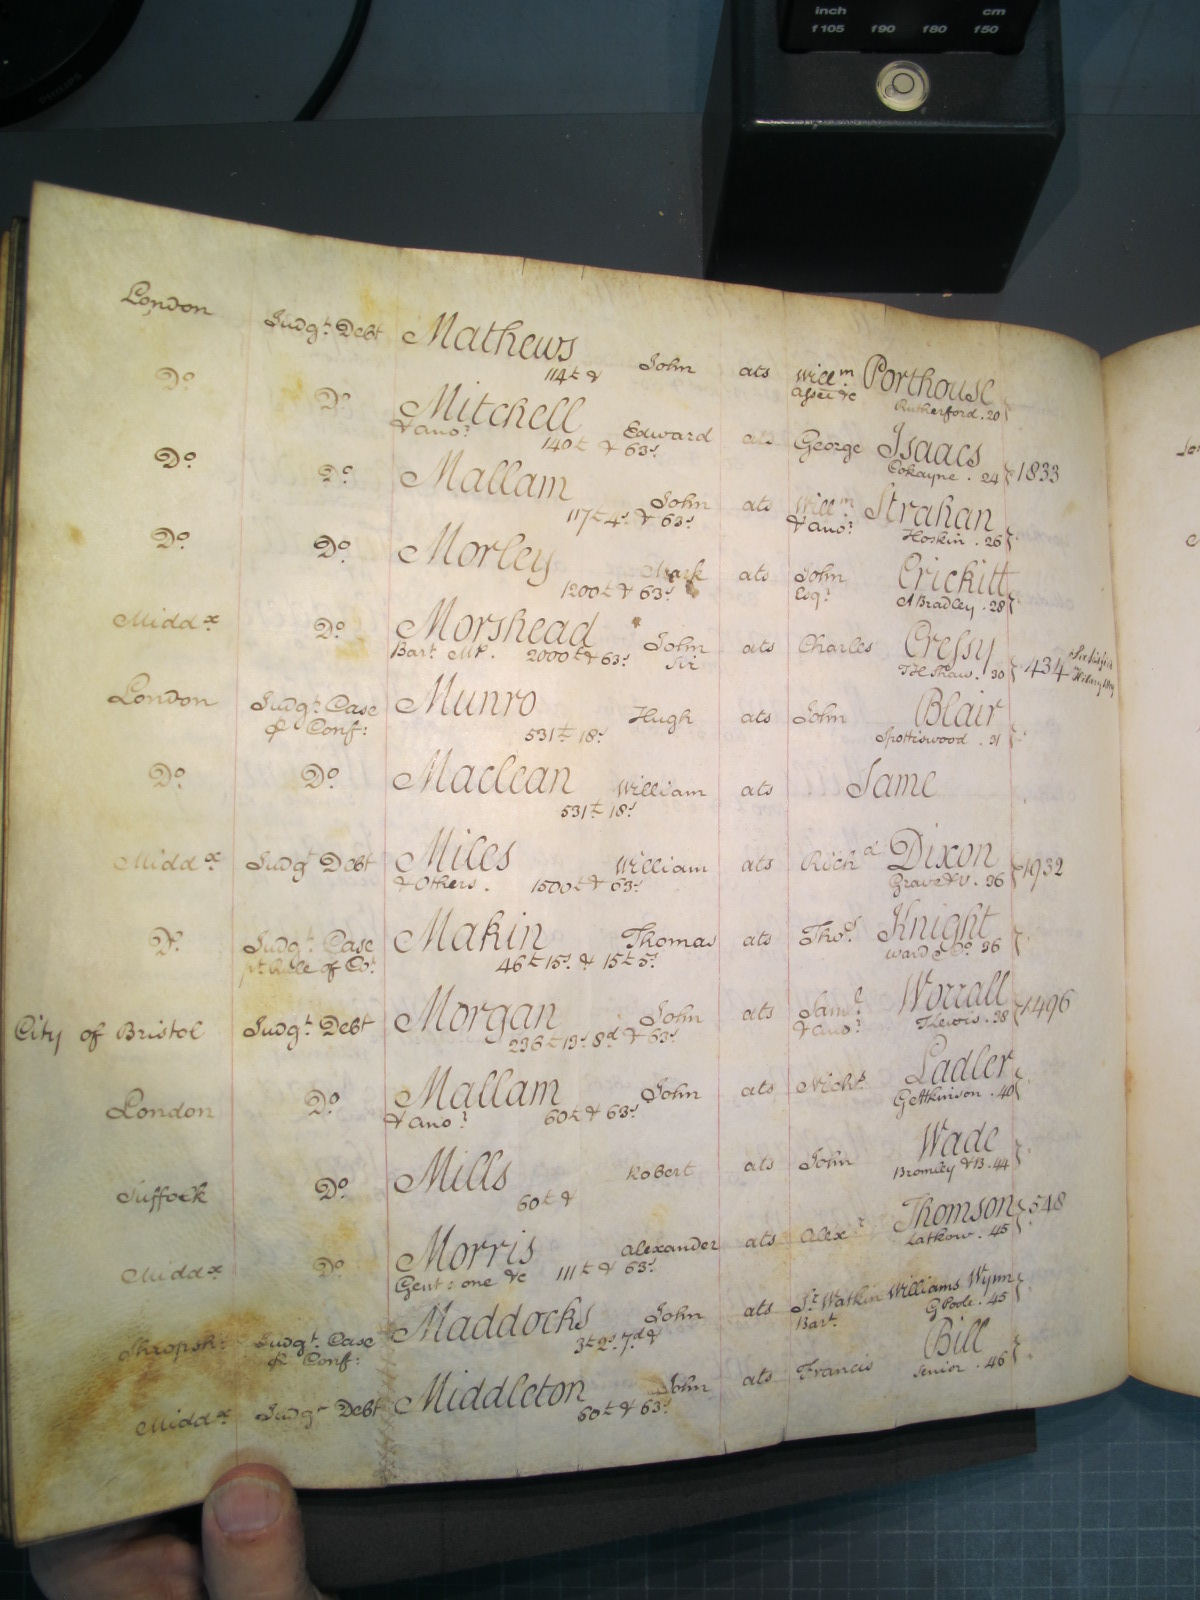 inch cm
f105 f90 f80 f50
London Judgt. Debt Mathews John ats Willm. Porthouse
114£ & Assee &c Rutherford . 20
Do. Do. Mitchell Edward ats George Isaacs
& ano: 140£ & 63s. Cokayne . 24 1833
Do. Do. Mallam John ats Willm. Strahan
117£ 4s. & 63s. & ano: Hoskin . 26
Do. Do. Morley Mark ats John Crickitt
1200£ & 63s. Esqr. A Bradley . 28
Middx. Do. Morshead John ats Charles Cressy
Bart. MP. 2000£ & 63s. Sir Shaw . 30 434
London Judgt. Case Munro Hugh ats John Blair
& Conf: 531£ 18s. Spottiswood . 31
Do. Do. Maclean William ats Same
531£ 18s.
Middx. Judgt. Debt Miles William ats Richd. Dixon
& Others . 1500£ & 63s. . 36 1932
Do. Judgt. Case Makin Thomas ats Thos. Knight
pt. Rule of Cot. 46£ 15s. & 15£ 5s. Ward & Co. 36
City of Bristol Judgt. Debt Morgan John ats Saml. Worrall
236£ 13s. 8d & 63s. & ano: T Lewis . 38 1496
London Do. Mallam John ats Nichs. Ladler
& ano: 60£ & 63s. G Atkinson . 40
Suffock Do. Mills Robert ats John Wade
60£ & Bromley & B . 44
Middx. Do. Morris Alexander ats Alexr. Thomson 548
Gent: one &c 111£ & 63s. Latkow . 45
Shropsh: Judgt. Case Maddocks John ats Sr. Watkin Williams Wynn
& Conf: 3£ 2s. 7d & Bart. G Poole . 45
Middx. Judgt. Debt Middleton John ats Francis Bill
60£ & 63s. Senior . 46